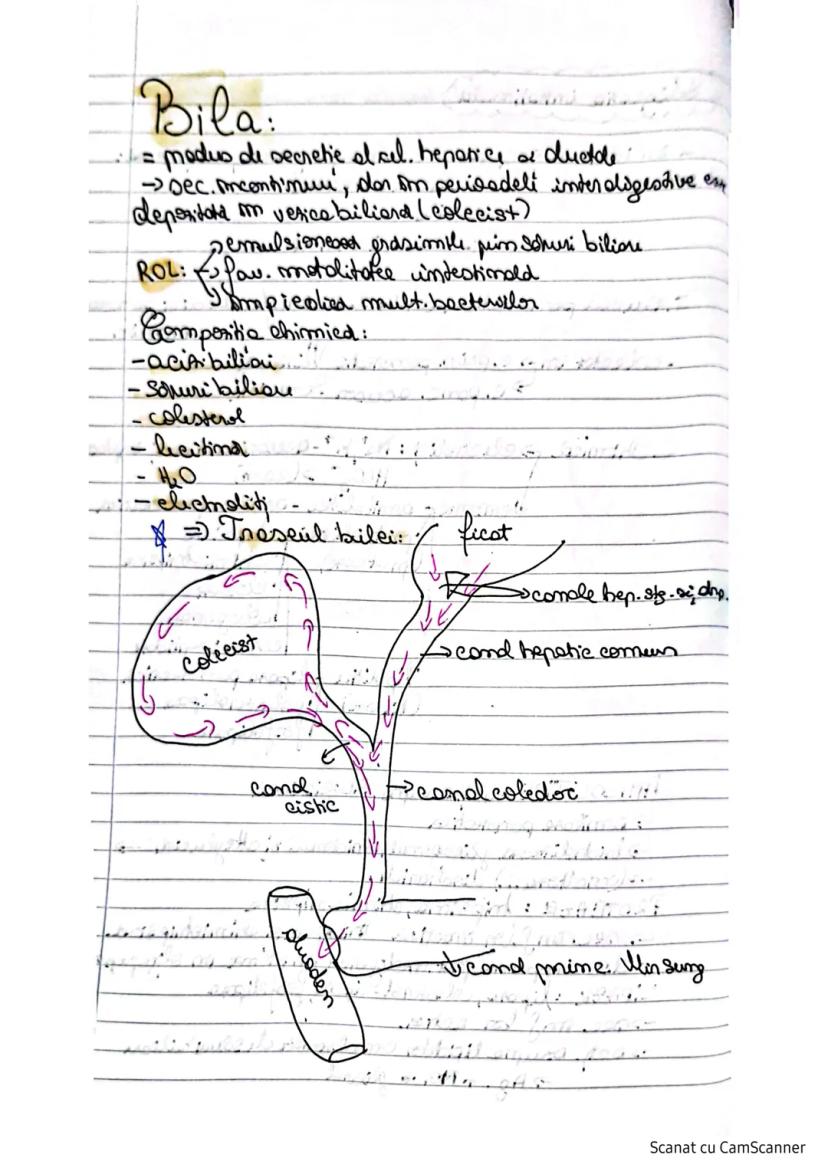 Bila:
= produs de secretie al cel. hepatice si ductale
→ sec. incontinuu, dar im perioadeli interdigestive e
depozitata im vezica biliara (colecist)
ROL: → emulsioneaza grasimile prim saruri biliare
→ fav. motalitatea imtestimala
→ împiedica mult. bacteriilor
Compozitia chimica:
- acizi biliari
- Saruri biliare
- colesterol
- lecitina
- H₂O
- electroliți
⇒ Traseul bilei:
ficat
→ canale hep. stg. și drp.
colecist
→ canal hepatic comun
canal
cistic
→ canal coledoc
duoden
canal princ. Wirsung
Scanat cu CamScanner